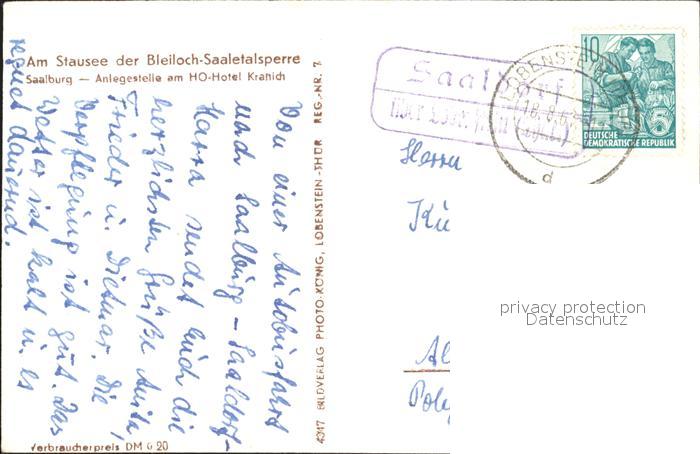 Am Stausee der Bleiloch-Saaletalsperre
Saalburg — Anlegestelle am HO-Hotel Kranich
Von einer Autobusfahrt
nach Saalburg - Saaldorf -
Harra sendet Euch die
herzlichsten Grüße Anita,
Frieder u. Dietmar. Die
Verpflegung ist gut. Das
Wetter ist kalt u. es
regnet dauernd.
Verbraucherpreis DM 0 20
4347 BILDVERLAG PHOTO-KÖNIG, LOBENSTEIN-THÜR REG.-NR. 7
Saaldorf
über
LOBENSTEIN
18.6.
d
10
DEUTSCHE
DEMOKRATISCHE REPUBLIK
5
Herrn
Kü
Al
Poly
privacy protection
Datenschutz